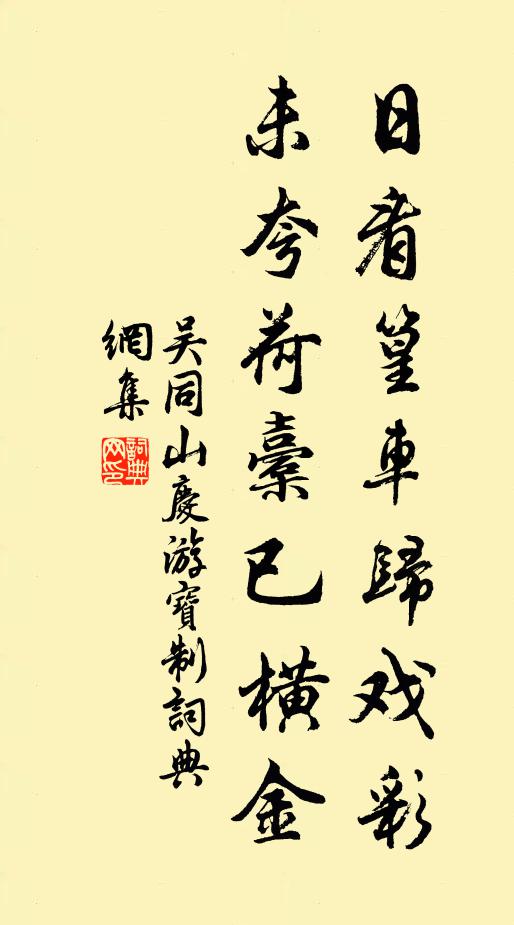 日看篁車歸戏彩
未夸荷橐已橫金
吴同山慶游寶制詞典
網集
詞典
网印